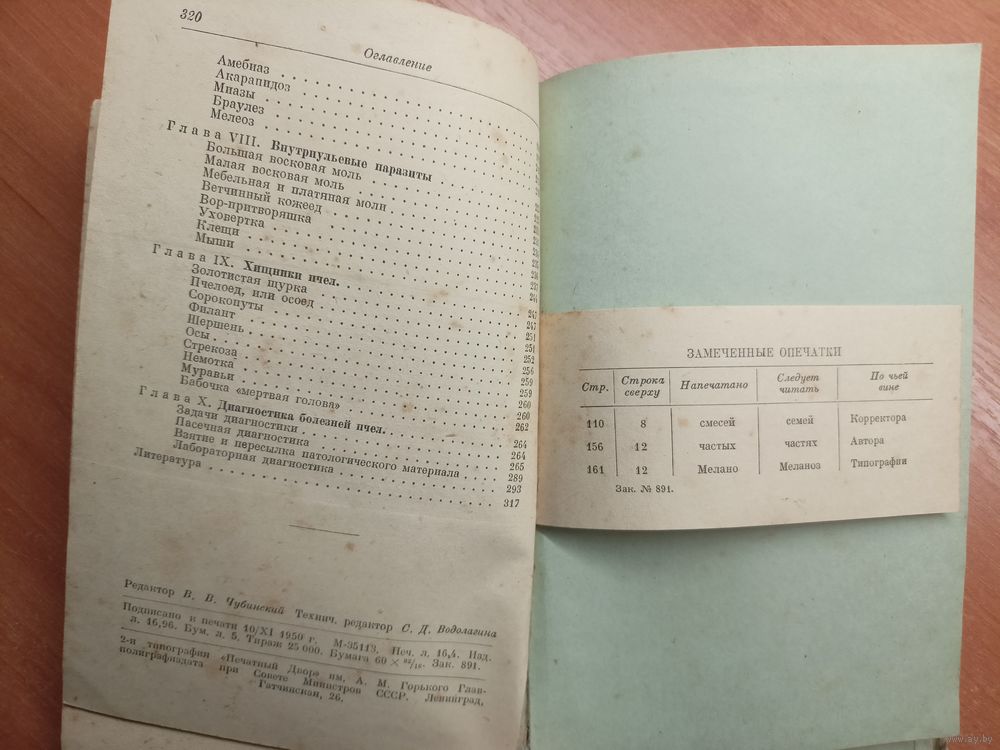 320
Оглавление
Амебиаз
Акарапидоз
Миазы
Браулез
Мелеоз
Глава VIII. Внутриульевые паразиты
Большая восковая моль
Малая восковая моль
Мебельная и платяная моли
Ветчинный кожеед
Вор-притворяшка
Уховертка
Клещи
Мыши
Глава IX. Хищники пчел.
Золотистая щурка
Пчелоед, или осоед
Сорокопуты
Филант
Шершень
Осы
Стрекоза
Немотка
Муравьи
Бабочка «мертвая голова»
Глава X. Диагностика болезней пчел.
Задачи диагностики
Пасечная диагностика
Взятие и пересылка патологического материала
Лабораторная диагностика
Литература
247
247
251
251
252
256
259
259
260
260
262
264
264
265
289
293
317
Редактор В. В. Чубинский Технич. редактор С. Д. Водолагина
Подписано к печати 10/XI 1950 г. М-35113. Печ. л. 16,4. Изд.
л. 16,96. Бум. л. 5. Тираж 25 000. Бумага 60 × 92/16. Зак. 891.
2-я типография «Печатный Двор» им. А. М. Горького Глав-
полиграфиздата при Совете Министров СССР. Ленинград,
Гатчинская, 26.
ЗАМЕ�ченНЫЕ ОПЕЧАТКИ
Стр. Строка сверху Напечатано Следует читать По чьей вине
110 8 смесей семей Корректора
156 12 частых частях Автора
161 12 Мелано Меланоз Типографии
Зак. № 891.
www.ay.by